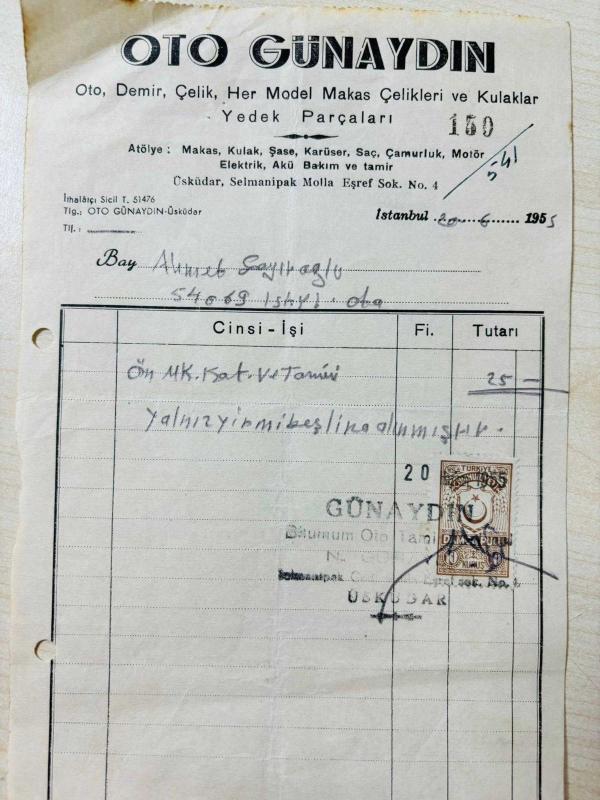 OTO GÜNAYDIN
Oto, Demir, Çelik, Her Model Makas Çelikleri ve Kulaklar
Yedek Parçaları
150
5-41
Atölye : Makas, Kulak, Şase, Karüser, Saç, Çamurluk, Motör
Elektrik, Akü Bakım ve tamir
Üsküdar, Selmanipak Molla Eşref Sok. No. 4
İthalâtçı Sicil T. 51476
Tlg.: OTO GÜNAYDIN-Üsküdar
Tlf. :
İstanbul 20 6 1955
Bay Ahmet
54069
Cinsi - İşi Fi. Tutarı
Ön Mk. Kat. Ve Tamiri 25 —
Yalnız yirmibeş lira alınmıştır.
20
TÜRKİYE CUMHURİYETİ
GÜNAYDIN
Oto Tami
N.
Selmanipak Eşref sok. No.
ÜSKÜDAR
KURUŞ